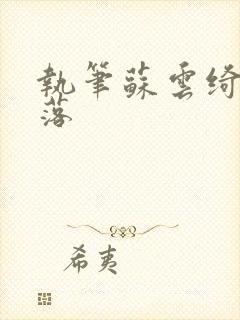 執筆蘇雲綺
落
希夷